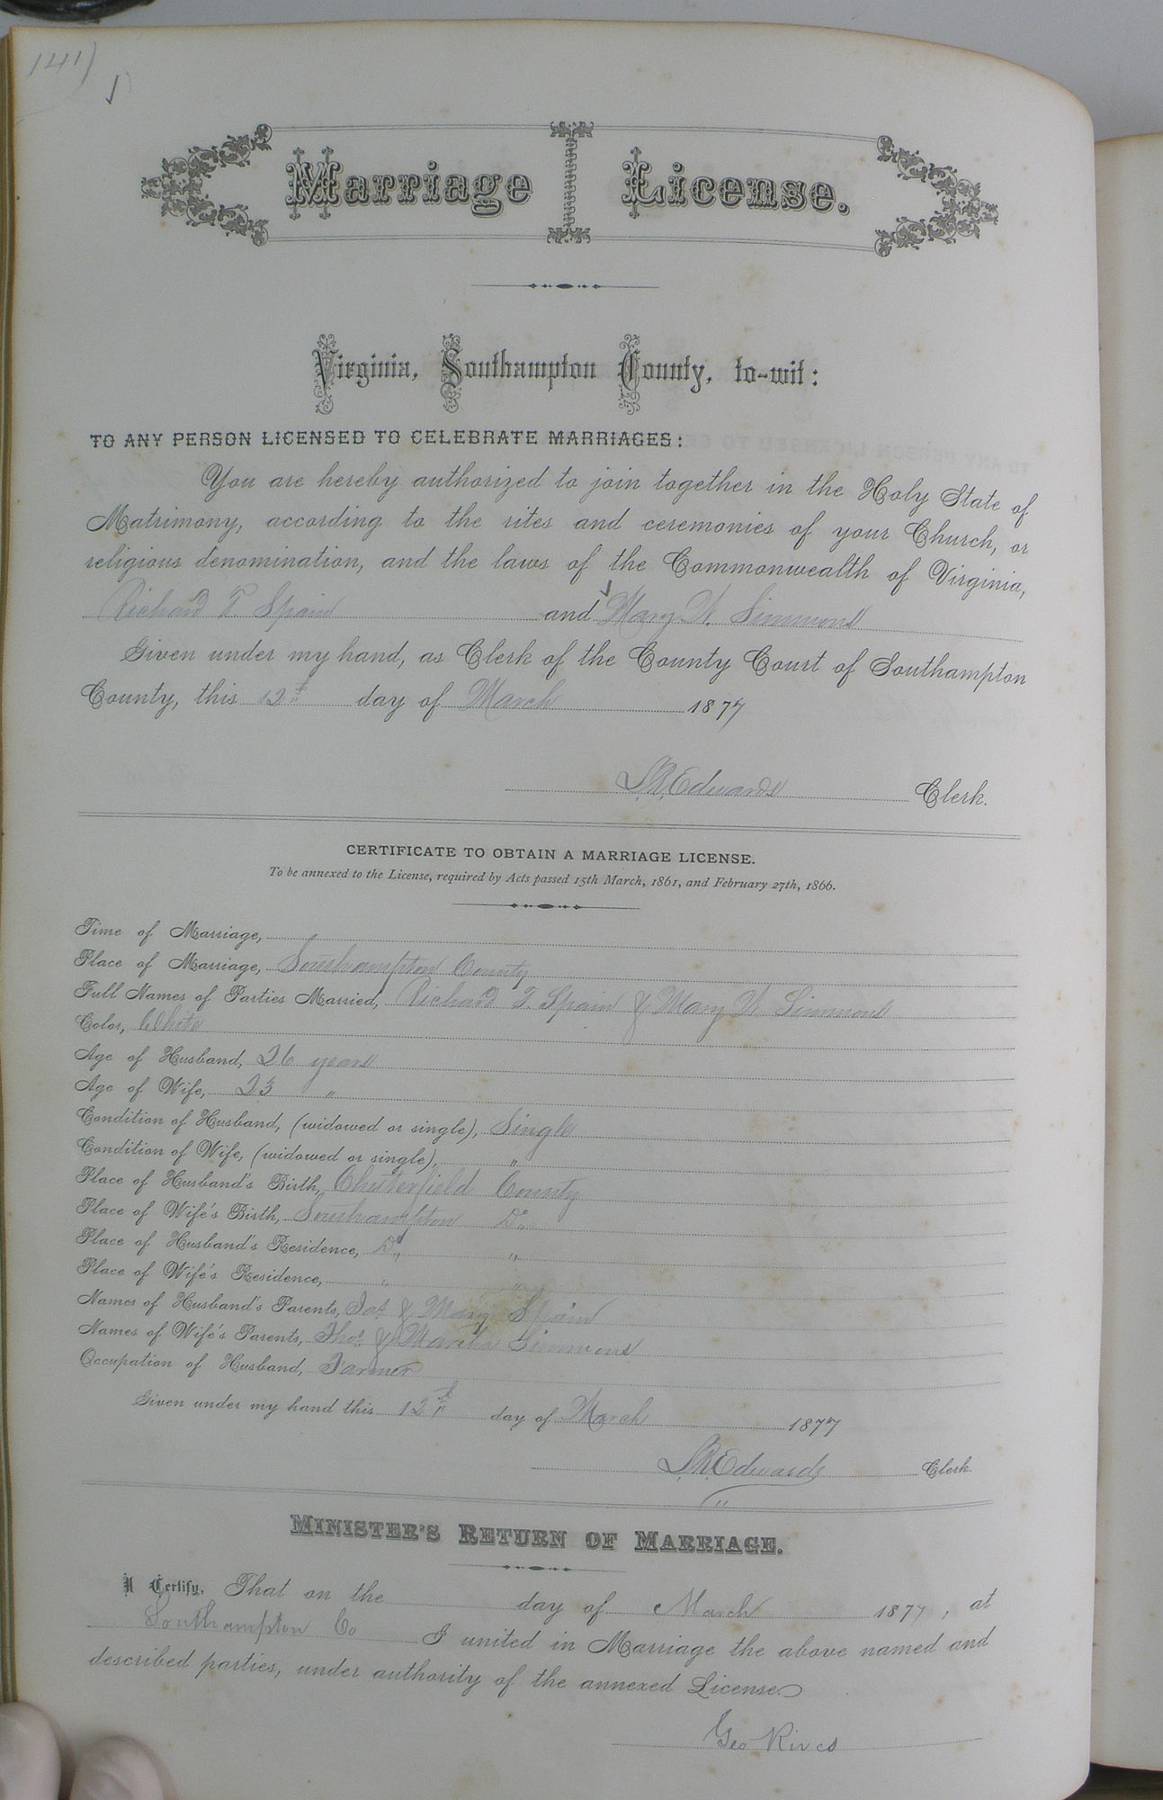 141)
Marriage License.
Virginia, Southampton County, to-wit:
TO ANY PERSON LICENSED TO CELEBRATE MARRIAGES:
You are hereby authorized to join together in the Holy State of
Matrimony, according to the rites and ceremonies of your Church, or
religious denomination, and the laws of the Commonwealth of Virginia,
Richard T. Spain and Mary W. Simmons
Given under my hand, as Clerk of the County Court of Southampton
County, this 12th day of March 1877
L.R. Edwards Clerk.
CERTIFICATE TO OBTAIN A MARRIAGE LICENSE.
To be annexed to the License, required by Acts passed 15th March, 1861, and February 27th, 1866.
Time of Marriage,
Place of Marriage, Southampton County
Full Names of Parties Married, Richard T. Spain & Mary W. Simmons
Color, White
Age of Husband, 26 years
Age of Wife, 23 "
Condition of Husband, (widowed or single), Single
Condition of Wife, (widowed or single), "
Place of Husband's Birth, Chesterfield County
Place of Wife's Birth, Southampton Do.
Place of Husband's Residence, Do. "
Place of Wife's Residence, " "
Names of Husband's Parents, & Mary Spain
Names of Wife's Parents, Thos. & Martha Simmons
Occupation of Husband, Farmer
Given under my hand this 12th day of March 1877
L.R. Edwards Clerk.
MINISTER'S RETURN OF MARRIAGE.
I Certify, That on the day of March 1877, at
Southampton Co I united in Marriage the above named and
described parties, under authority of the annexed License.
Geo Rives